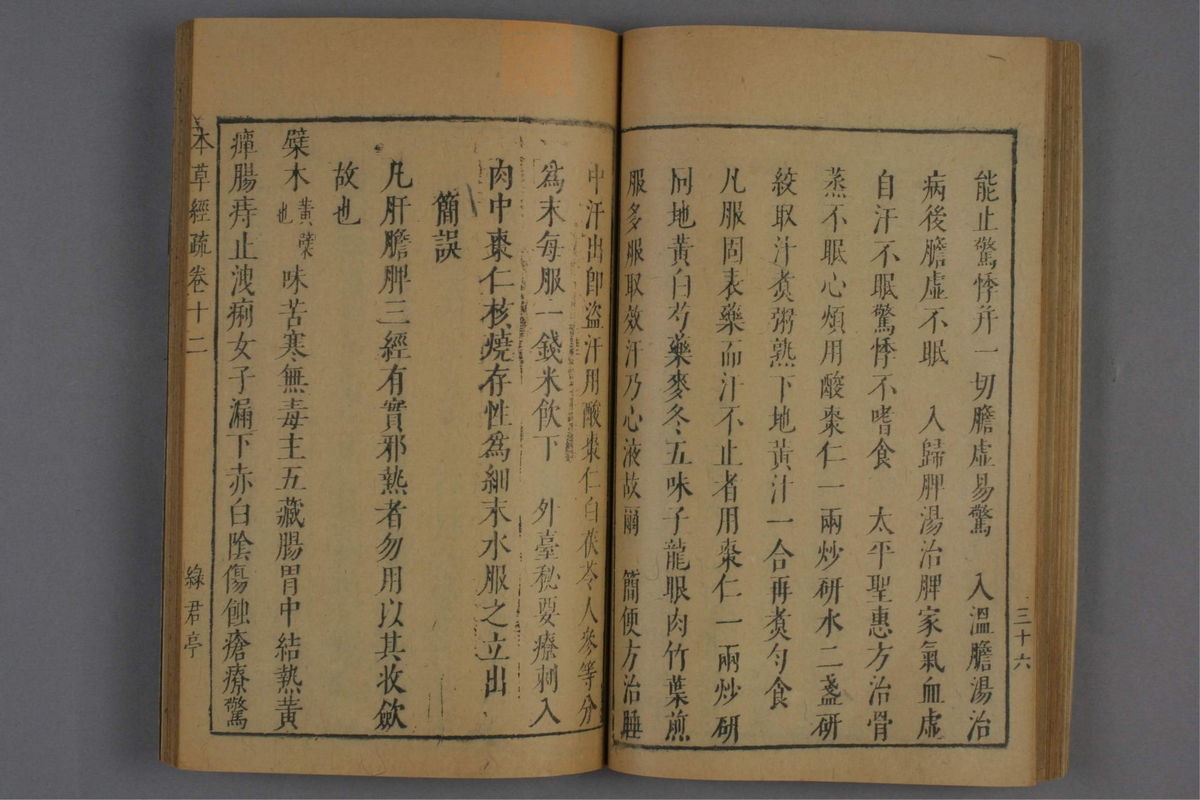 三十六
能止驚悸并一切膽虛易驚　入溫膽湯治
病後膽虛不眠　入歸脾湯治脾家氣血虛
自汗不眠驚悸不嗜食　太平聖惠方治骨
蒸不眠心煩用酸棗仁一兩炒研水二盞研
絞取汁煮粥熟下地黃汁一合再煮勻食
凡服固表藥而汗不止者用棗仁一兩炒研
同地黃白芍藥麥冬五味子龍眼肉竹葉煎
服多服取效汗乃心液故爾　簡便方治睡
中汗出卽盜汗用酸棗仁白茯苓人參等分
為末每服一錢米飲下　外臺秘要療刺入
肉中棗仁核燒存性為細末水服之立出
簡誤
凡肝膽脾三經有實邪熱者勿用以其收斂
故也
蘗木黃蘗也味苦寒無毒主五藏腸胃中結熱黃
癉腸痔止洩痢女子漏下赤白陰傷蝕瘡療驚
本草經疏卷十二
綠君亭